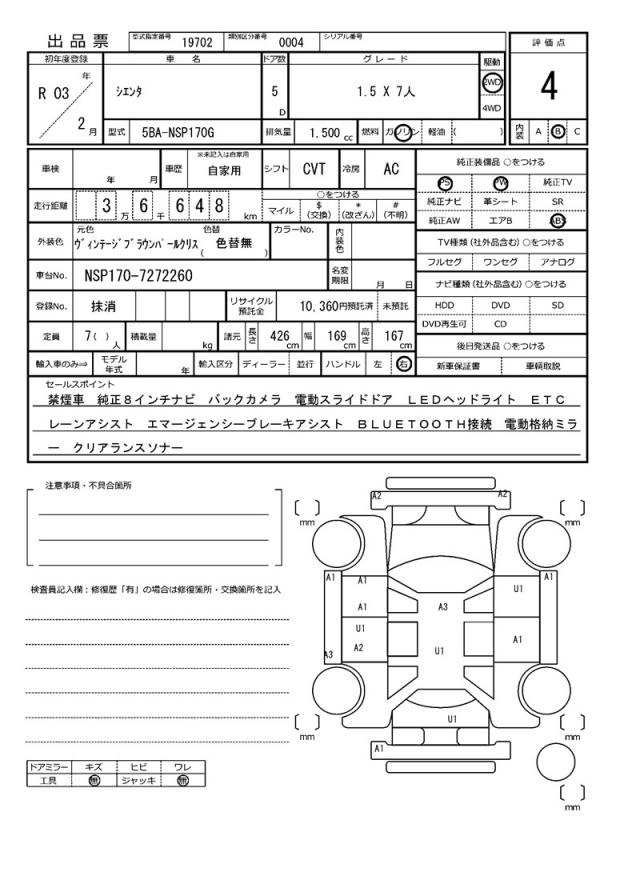 出品票
型式指定番号 19702 類別区分番号 0004 シリアル番号
評価点
4
内装 A B C
初年度登録 車名 ドア数 グレード 駆動
R 03 年 2 月
シエンタ 5 D 1.5 X 7人 2WD 4WD
型式 5BA-NSP170G 排気量 1.500 cc 燃料 ガソリン 軽油 ( )
車検 年 月 車歴 ※未記入は自家用 自家用 シフト CVT 冷房 AC
純正装備品 ○をつける
PS PW 純正TV
純正ナビ 革シート SR
純正AW エアB ABS
走行距離 3 6 万 千 6 4 8 km
○をつける
マイル $ (交換) * (改ざん) # (不明)
外装色 元色 ヴィンテージブラウンパールクリス 色替 ( 色替無 ) カラーNo. 内装色
TV種類 (社外品含む) ○をつける
フルセグ ワンセグ アナログ
車台No. NSP170-7272260 名変期限 月 日
ナビ種類 (社外品含む) ○をつける
HDD DVD SD
DVD再生可 CD
登録No. 抹消 リサイクル預託金 10,360円預託済 未預託
定員 7( ) 人 積載量 kg 諸元 長さ 426 cm 幅 169 cm 高さ 167 cm
後日発送品 ○をつける
新車保証書 車輌取説
輸入車のみ⇒ モデル年式 年 輸入区分 ディーラー 並行 ハンドル 左 右
セールスポイント
禁煙車 純正8インチナビ バックカメラ 電動スライドドア LEDヘッドライト ETC
レーンアシスト エマージェンシーブレーキアシスト BLUETOOTH接続 電動格納ミラ
ー クリアランスソナー
注意事項・不具合箇所
検査員記入欄:修復歴「有」の場合は修復箇所・交換箇所を記入
A2 A2
mm mm
A1 A1 U1 A1
A1 A3
U1 A1
A3 A2 U1
mm U1 mm
A1
mm
ドアミラー キズ ヒビ ワレ
工具 無 ジャッキ 無